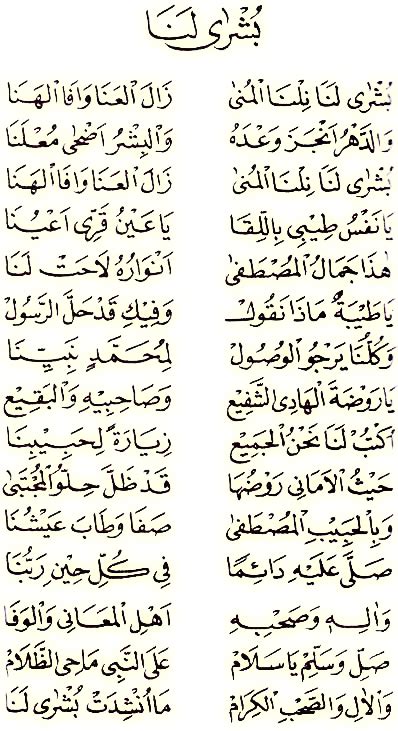 بُشْرٰى لَنَا
بُشْرٰى لَنَا نِلْنَا الْمُنٰى زَالَ الْعَنَا وَافَا الْهَنَا
وَالدَّهْرُ اَنْجَزَ وَعْدَهُ وَالْبِشْرُ اَضْحٰى مُعْلَنَا
بُشْرٰى لَنَا نِلْنَا الْمُنٰى زَالَ الْعَنَا وَافَا الْهَنَا
يَا نَفْسُ طِيْبِى بِاللِّقَا يَا عَيْنُ قَرِّى اَعْيُنَا
هٰذَا جَمَالُ الْمُصْطَفٰى اَنْوَارُهُ لَاحَتْ لَنَا
يَا طَيْبَةُ مَاذَا نَقُوْلْ وَفِيْكِ قَدْ حَلَّ الرَّسُوْلْ
وَكُلُّنَا يَرْجُو الْوُصُوْلْ لِمُحَمَّدٍ نَبِيِّنَا
يَا رَوْضَةَ الْهَادِى الشَّفِيْعْ وَصَاحِبَيْهِ وَالْبَقِيْعْ
اُكْتُبْ لَنَا نَحْنُ الْجَمِيْعْ زِيَارَةً لِحَبِيْبِنَا
حَيْثُ الْاَمَانِى رَوْضُهَا قَدْ ظَلَّ حِلْوُ الْمُجْتَبٰى
وَبِالْحَبِيْبِ الْمُصْطَفٰى صَفَا وَطَابَ عَيْشُنَا
صَلَّى عَلَيْهِ دَائِمًا فِى كُلِّ حِيْنٍ رَبُّنَا
وَاٰلِهِ وَصَحْبِهِ اَهْلِ الْمَعَانِى وَالْوَفَا
صَلِّ وَسَلِّمْ يَا سَلَامْ عَلَى النَّبِى مَاحِى الظَّلَامْ
وَالْاٰلِ وَالصَّحْبِ الْكِرَامْ مَا اُنْشِدَتْ بُشْرٰى لَنَا